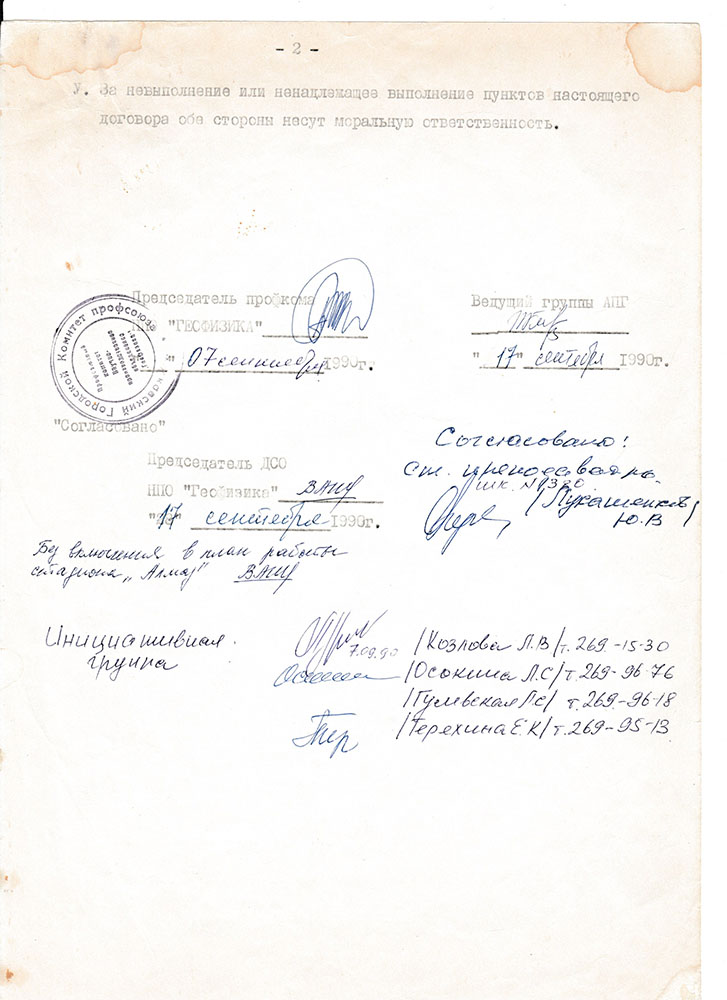 - 2 -
У. За невыполнение или ненадлежащее выполнение пунктов настоящего
договора обе стороны несут моральную ответственность.
Председатель профкома
"ГЕОФИЗИКА"
" 07 сентября 1990г.
Ведущий группы АПГ
"17" сентября 1990г.
Городской Комитет профсоюза
"Согласовано"
Председатель ДСО
НПО "Геофизика"
"17 сентября 1990г.
Согласовано!
ст. преподаватель
шк. №1380
/Лукашенков/
Ю.В
Без включения в план работы
стадиона „Алмаз"
Инициативная
группа
7.09.90 /Козлова Л.В/т. 269-15-30
/Осокина Л.С/т. 269-96-76
/Гулевская Л.С/ т. 269-96-18
/Терехина Е.К/т. 269-95-13